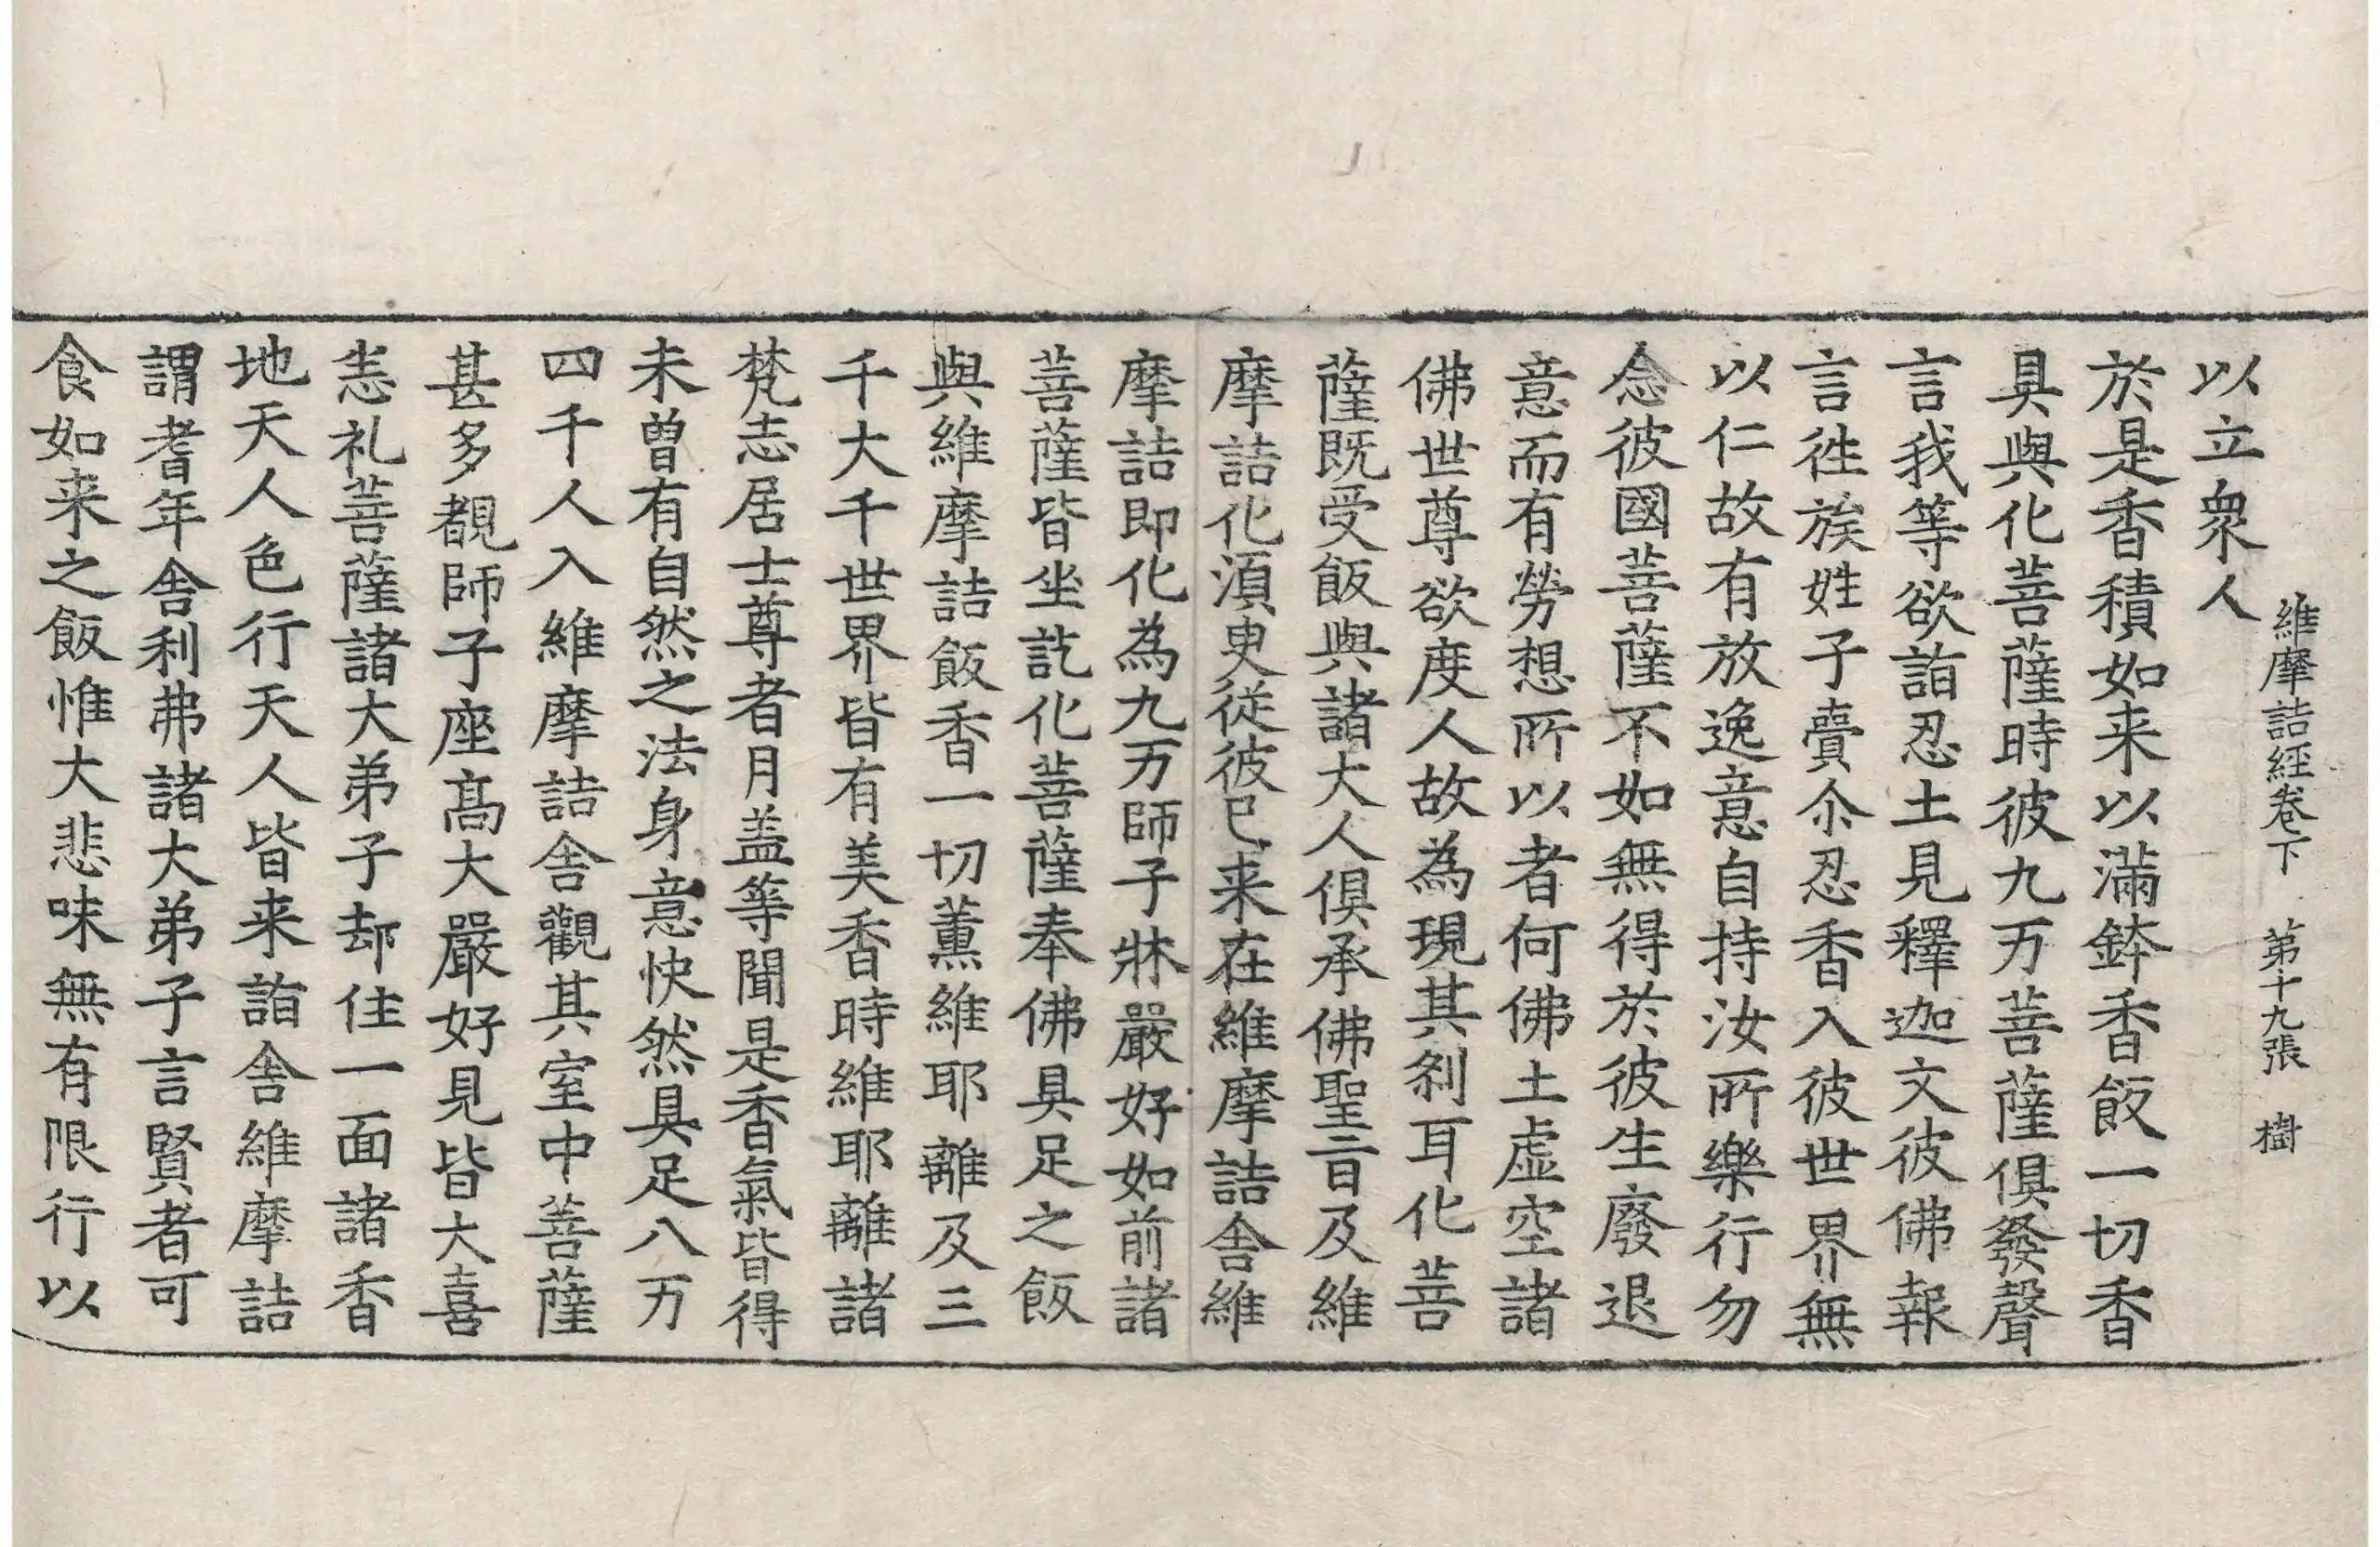 維摩詰經卷下 第十九張 樹
以立衆人
於是香積如来以滿鉢香飯一切香
具與化菩薩時彼九万菩薩俱發聲
言我等欲詣忍土見釋迦文彼佛報
言徃族姓子賷尒忍香入彼世界無
以仁故有放逸意自持汝所樂行勿
念彼國菩薩不如無得於彼生廢退
意而有勞想所以者何佛土虛空諸
佛世尊欲度人故為現其刹耳化菩
薩既受飯與諸大人俱承佛聖旨及維
摩詰化湏臾從彼已来在維摩詰舍維
摩詰即化為九万師子牀嚴好如前諸
菩薩皆坐訖化菩薩奉佛具足之飯
與維摩詰飯香一切薰維耶離及三
千大千世界皆有美香時維耶離諸
梵志居士尊者月盖等聞是香氣皆得
未曽有自然之法身意快然具足八万
四千人入維摩詰舍觀其室中菩薩
甚多覩師子座髙大嚴好見皆大喜
悉礼菩薩諸大弟子却住一面諸香
地天人色行天人皆来詣舍維摩詰
謂耆年舍利弗諸大弟子言賢者可
食如来之飯惟大悲味無有限行以